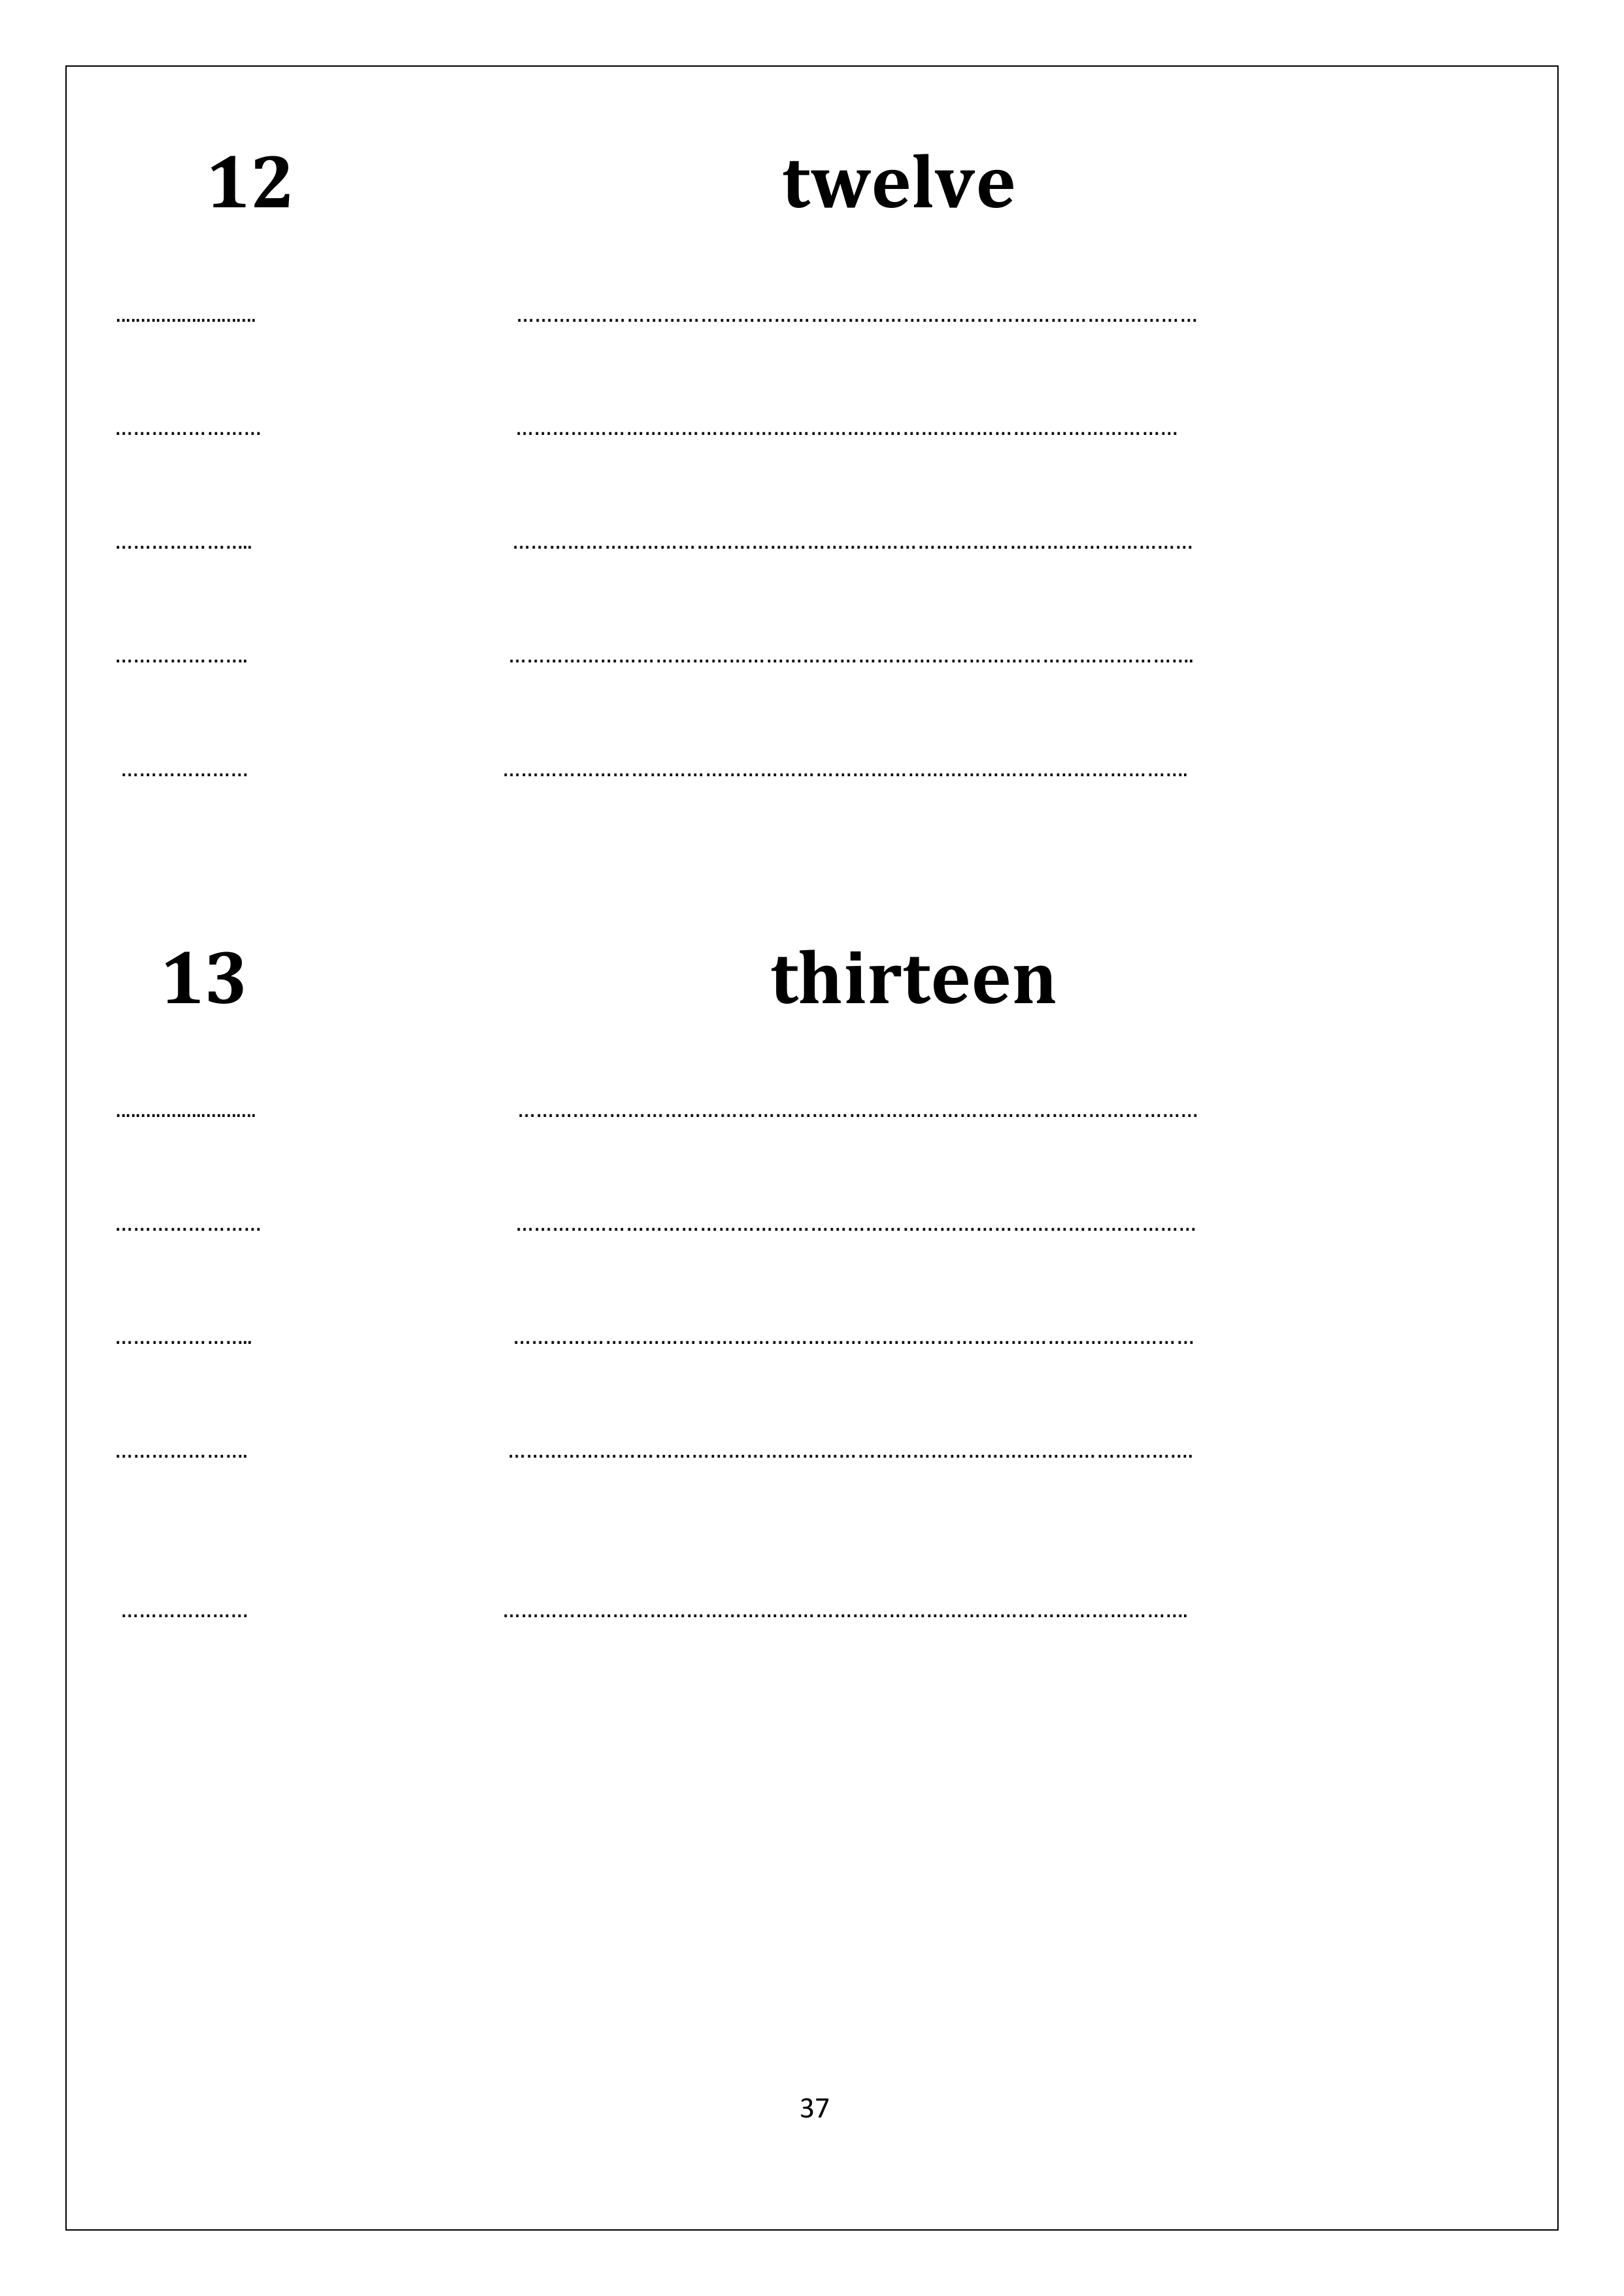 12 twelve
........................... ……………………………………………………………………………………………………
…………………… …………………………………………………………………………………………………
………………….. ……………………………………………………………………………………………………
…………………. …………………………………………………………………………………………………….
………………… …………………………………………………………………………………………………….
13 thirteen
........................... ……………………………………………………………………………………………………
…………………… ……………………………………………………………………………………………………
………………….. ……………………………………………………………………………………………………
…………………. …………………………………………………………………………………………………….
………………… …………………………………………………………………………………………………….
37